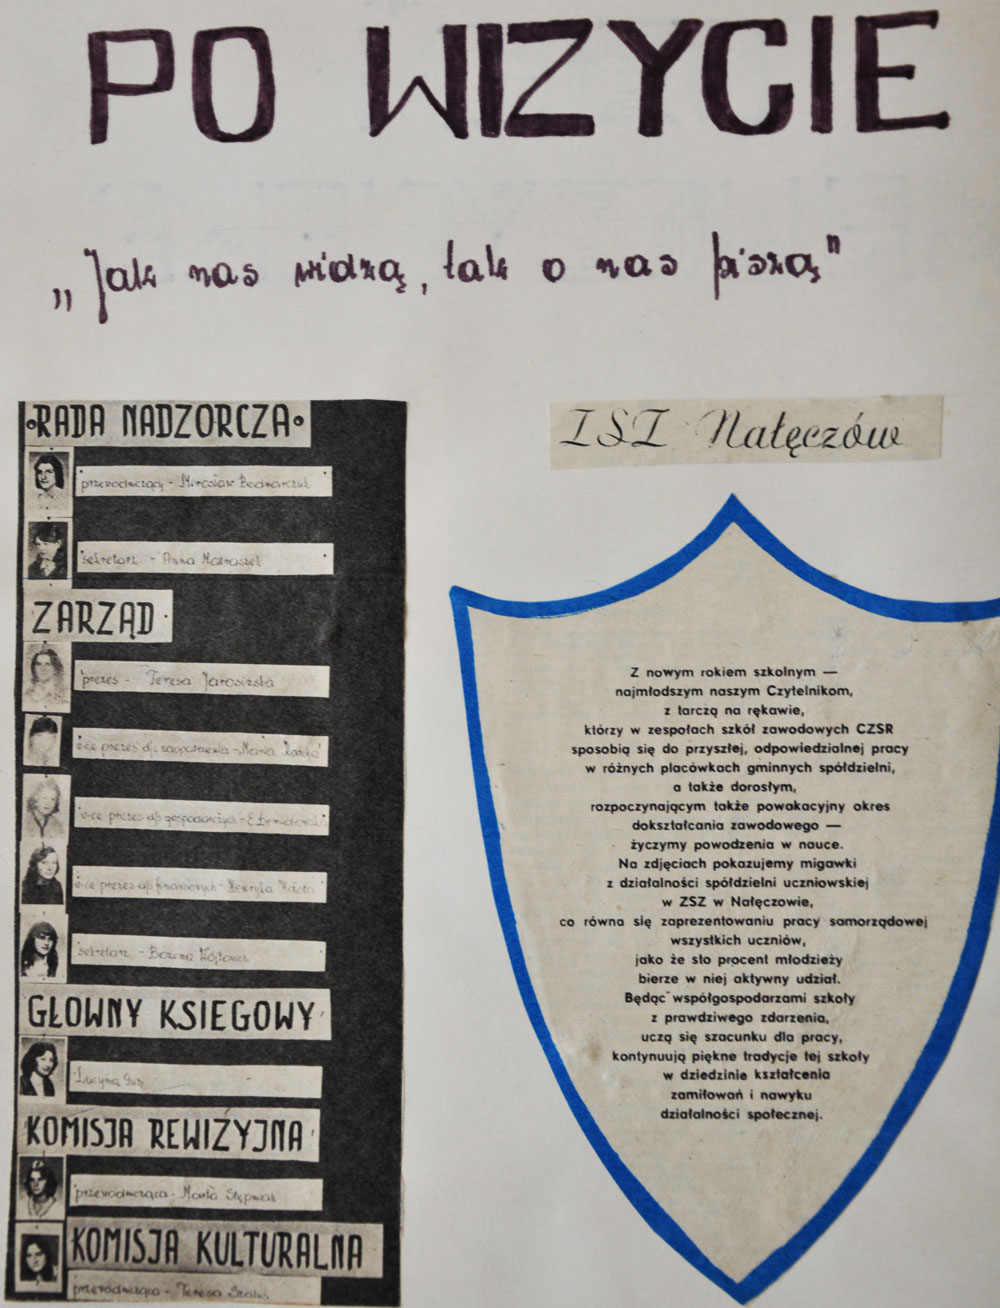 PO WIZYCIE
„Jak nas widzą, tak o nas piszą"
RADA NADZORCZA
przewodniczący - Mirosław Bednarczyk
sekretarz - Anna Matraszek
ZARZĄD
prezes - Teresa Jarosińska
v-ce prezes d/s zaopatrzenia - Maria
v-ce prezes d/s gospodarczych - E.
v-ce prezes d/s finansowych - Henryka
sekretarz - Bożena Wójtowicz
GŁOWNY KSIEGOWY
Lucyna
KOMISJA REWIZYJNA
przewodnicząca - Marta Stępniak
KOMISJA KULTURALNA
przewodnicząca - Teresa
ZSZ Nałęczów
Z nowym rokiem szkolnym —
najmłodszym naszym Czytelnikom,
z tarczą na rękawie,
którzy w zespołach szkół zawodowych CZSR
sposobią się do przyszłej, odpowiedzialnej pracy
w różnych placówkach gminnych spółdzielni,
a także dorosłym,
rozpoczynającym także powakacyjny okres
dokształcania zawodowego —
życzymy powodzenia w nauce.
Na zdjęciach pokazujemy migawki
z działalności spółdzielni uczniowskiej
w ZSZ w Nałęczowie,
co równa się zaprezentowaniu pracy samorządowej
wszystkich uczniów,
jako że sto procent młodzieży
bierze w niej aktywny udział.
Będąc współgospodarzami szkoły
z prawdziwego zdarzenia,
uczą się szacunku dla pracy,
kontynuują piękne tradycje tej szkoły
w dziedzinie kształcenia
zamiłowań i nawyku
działalności społecznej.